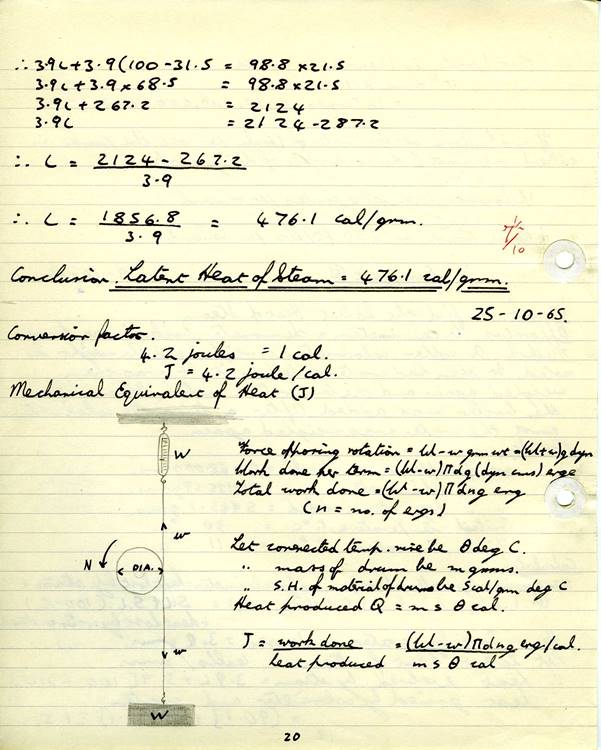 ∴ 3.9L + 3.9(100 - 31.5 = 98.8 x 21.5
3.9L + 3.9 x 68.5 = 98.8 x 21.5
3.9L + 267.2 = 2124
3.9L = 2124 - 287.2
∴ L = 2124 - 267.2
3.9
∴ L = 1856.8 = 476.1 cal/gmm.
3.9
/10
Conclusion. Latent Heat of Steam = 476.1 cal/gmm.
25-10-65.
Conversion factor.
4.2 joules = 1 cal.
J = 4.2 joule/cal.
Mechanical Equivalent of Heat (J)
W
Force opposing rotation = W - w gmm wt = (W + w)g dyn
Work done per term = (W - w)Πdg (dyn cms) ergs
Total work done = (W - w)Πdng erg
(n = no. of ergs)
w
Let corrected temp. rise be θ deg C.
N DIA.
" mass of drum be m gmms.
" S.H. of material of drum be s cal/gmm deg C
Heat produced Q = m s θ cal.
w
J = work done = (W - w)Πdng erg/cal.
heat produced m s θ cal
W
20